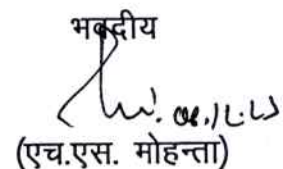 भवदीय
(एच.एस. मोहन्ता)